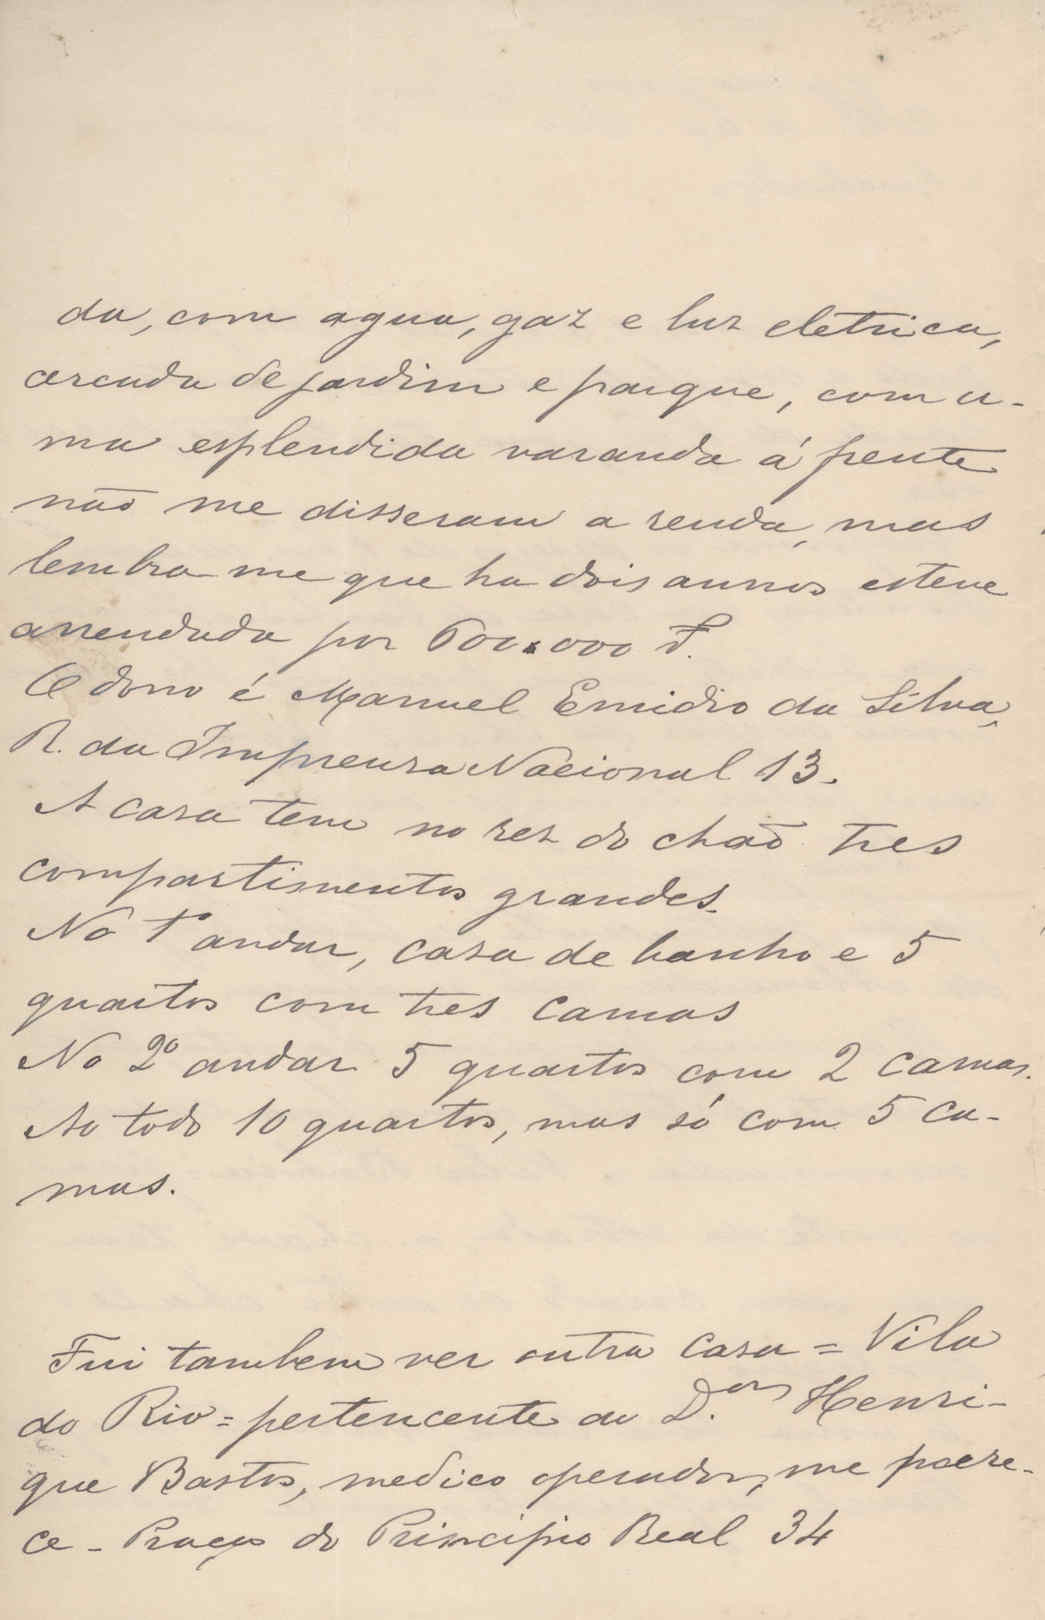 da, com agua, gaz e luz eletrica,
cercada de jardim e parque, com u-
ma esplendida varanda á frente
não me disseram a renda, mas
lembra-me que ha dois annos esteve
arrendada por 600.000 r.
O dono é Manuel Emidio da Silva,
R. da Imprensa Nacional 13.
A casa tem no rez do chão tres
compartimentos grandes.
No 1º andar, casa de banho e 5
quartos com tres camas
No 2º andar 5 quartos com 2 camas.
Ao todo 10 quartos, mas só com 5 ca-
mas.
Fui tambem ver outra casa = Vila
do Rio = pertencente ao D.or Henri-
que Bastos, medico operador, me parece-
ce - Praça do Principio Real 34